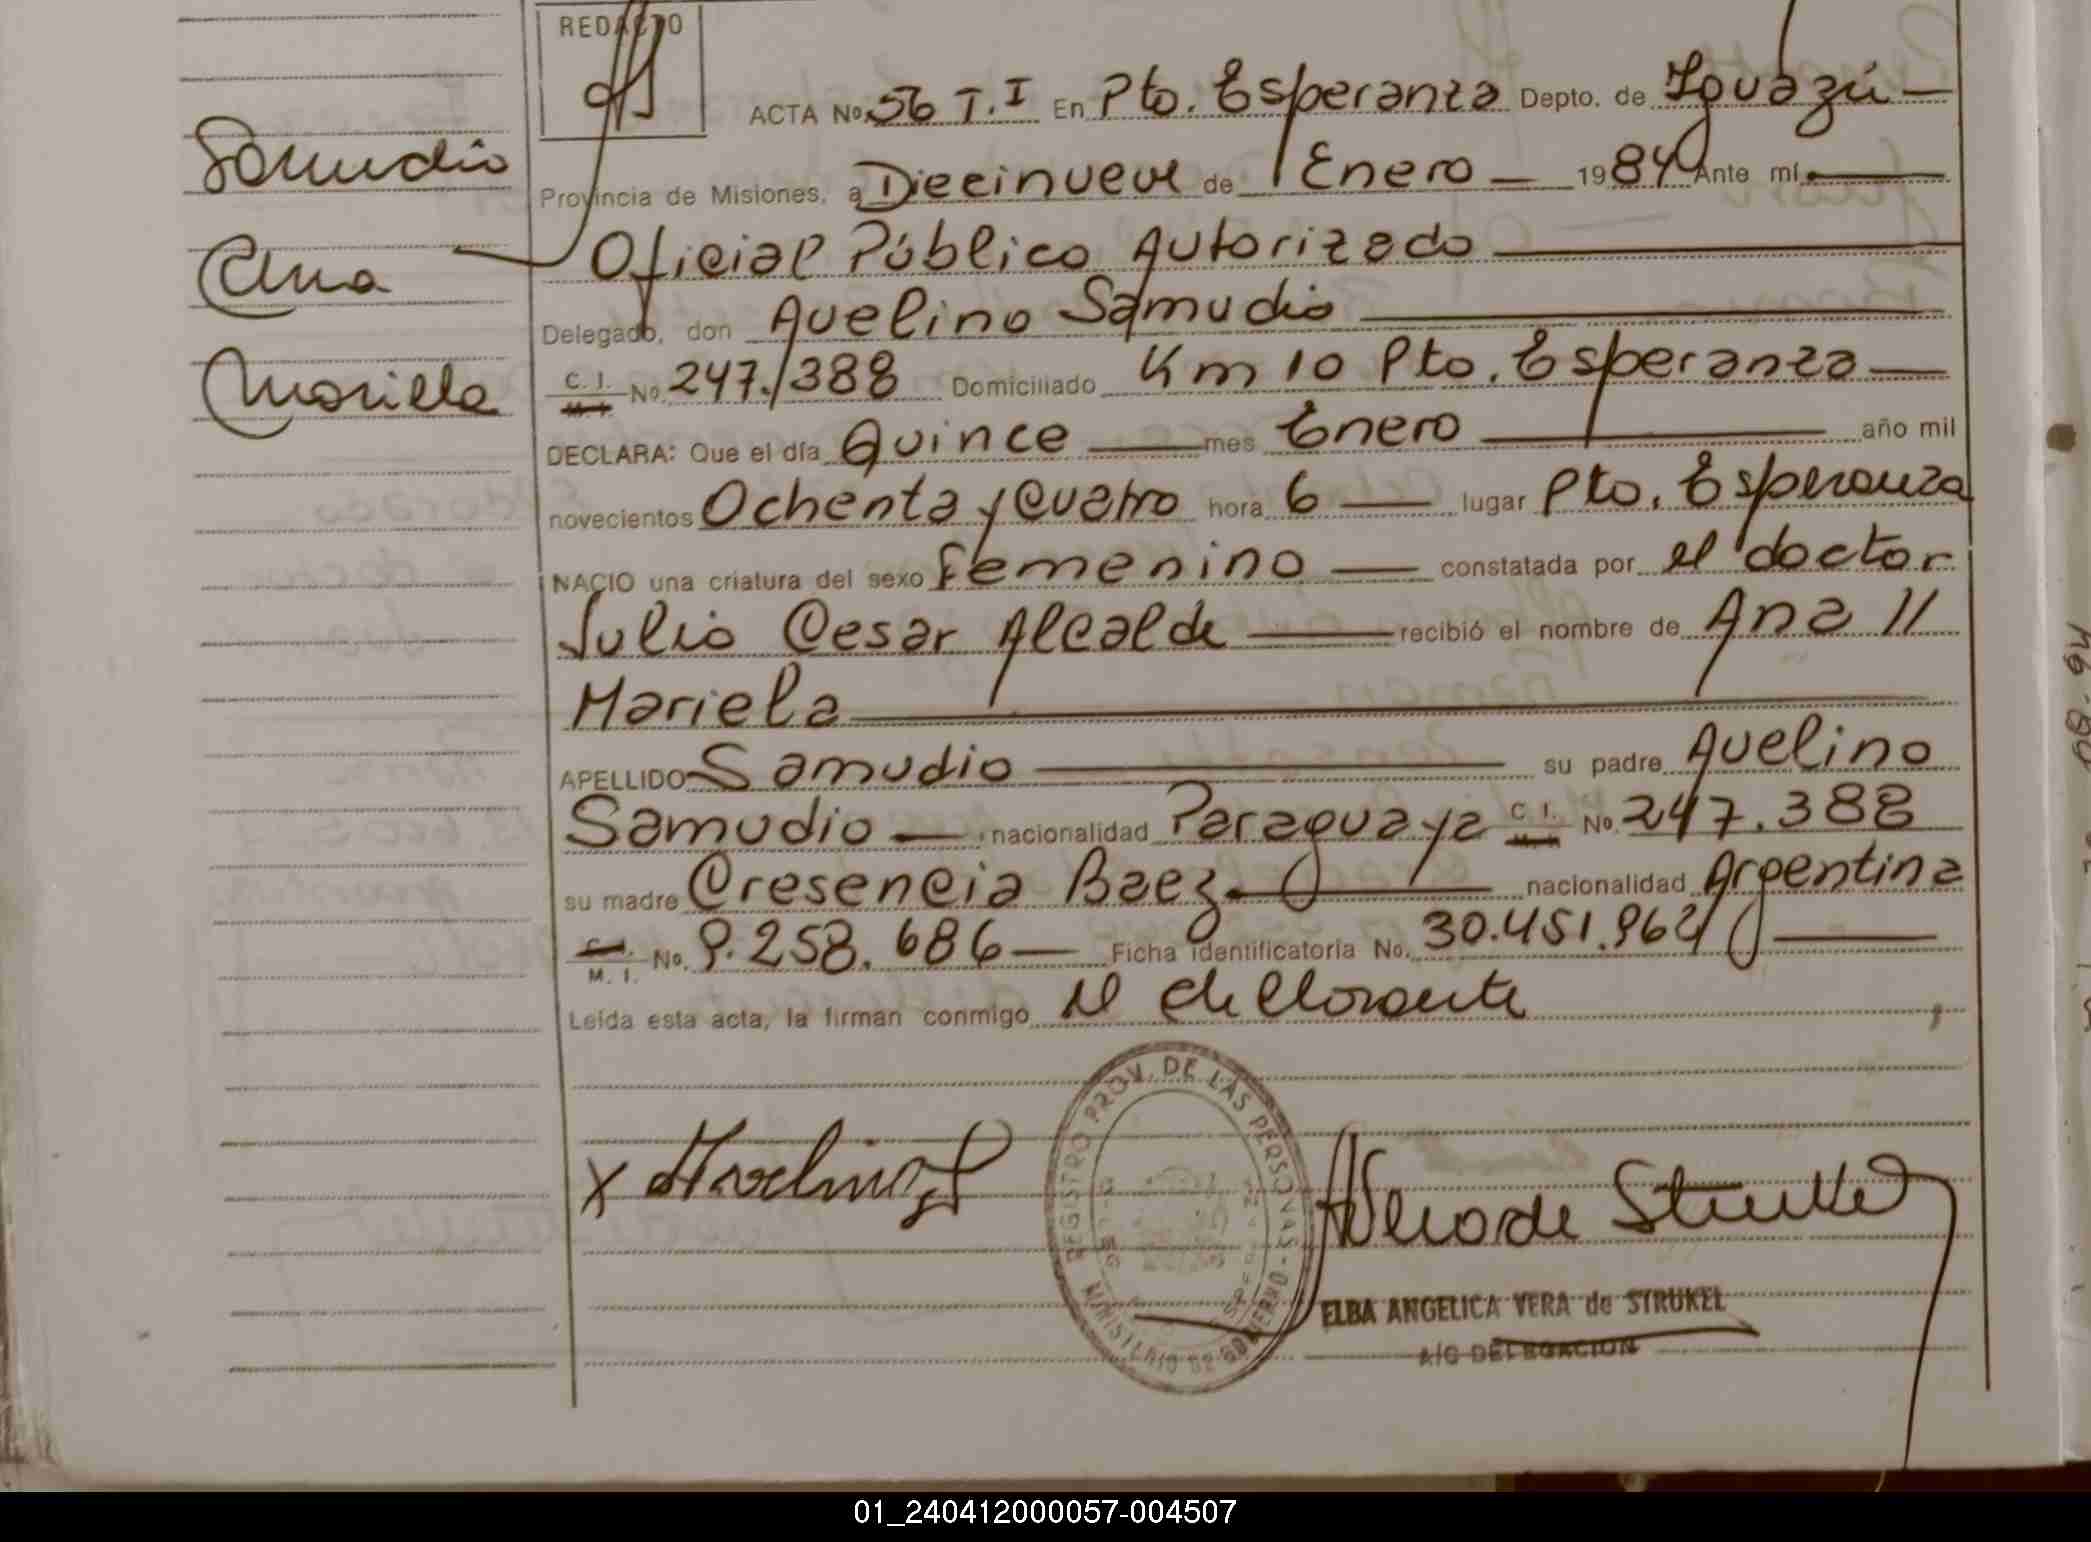 REDACTO
ACTA Nº 56 T. I En Pto. Esperanza Depto. de Iguazú
Provincia de Misiones, a Diecinueve de Enero 1984 Ante mí
Oficial Público Autorizado
Delegado, don Avelino Samudio
C. I. Nº 247.388 Domiciliado Km 10 Pto. Esperanza
DECLARA: Que el día Quince mes Enero año mil
novecientos Ochenta y Cuatro hora 6 lugar Pto. Esperanza
NACIO una criatura del sexo Femenino constatada por el doctor
Julio Cesar Alcalde recibió el nombre de Ana //
Mariela
APELLIDO Samudio su padre Avelino
Samudio nacionalidad Paraguaya C. I. Nº 247.388
su madre Cresencia Baez nacionalidad Argentina
M. I. Nº 9.258.686 Ficha identificatoria No. 30.451.962
Leída esta acta, la firman conmigo el declarante
Samudio
Ana
Mariela
X Avelino S
REGISTRO PROV. DE LAS PERSONAS - MINISTERIO DE GOBIERNO
AVera de Strukel
ELBA ANGELICA VERA de STRUKEL
A/C DELEGACION
01_240412000057-004507